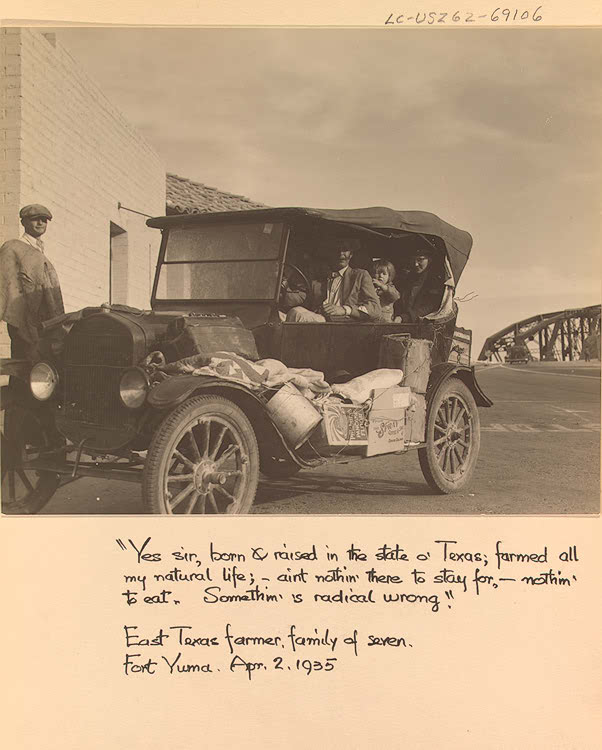 LC-USZ62-69106
"Yes sir, born & raised in the state o' Texas; farmed all
my natural life; - aint nothin' there to stay for, - nothin'
to eat. Somethin' is radical wrong".
East Texas farmer, family of seven.
Fort Yuma. Apr. 2. 1935